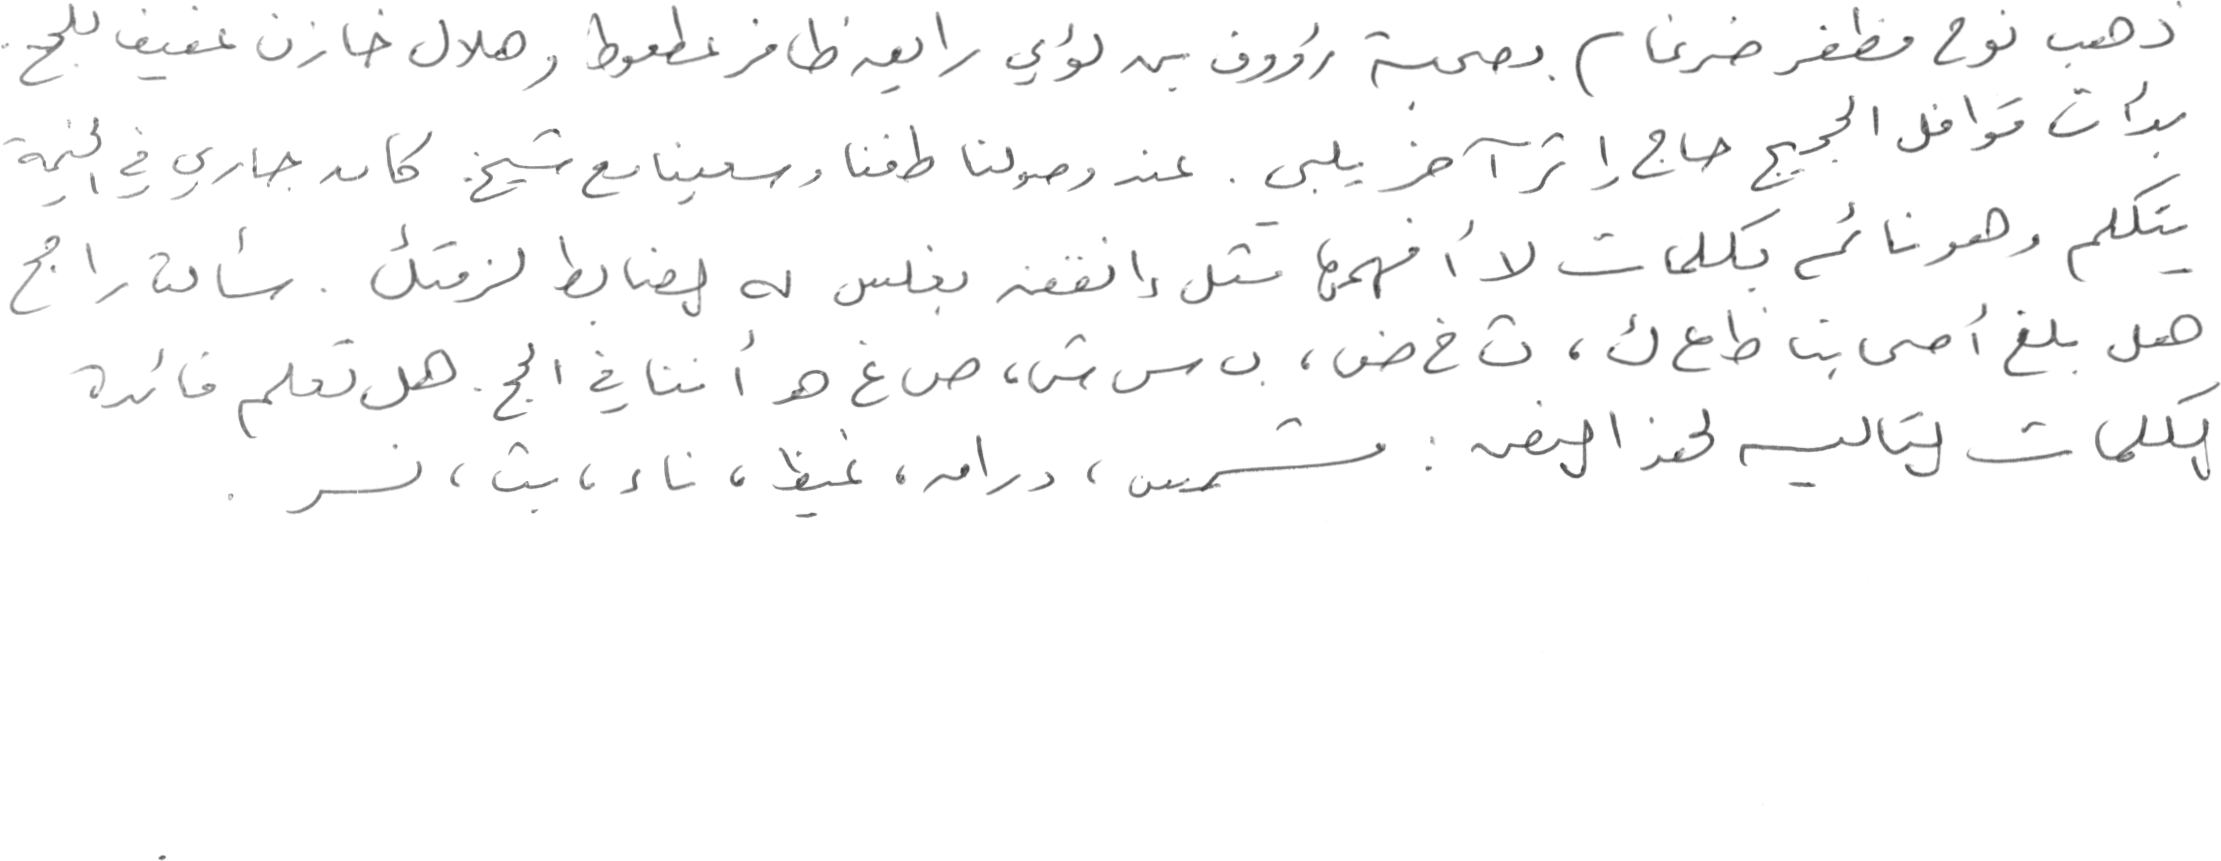 ذهب نوح مظفر ضرغام بصحبة رؤوف بن لؤي رايق ظافر عطعوط وهلال خازن عفيف للحج.
بدأت قوافل الحجيج حاج إثر آخر يلبى. عند وصولنا طفنا وسعينا مع شيخ. كان جاري في الخيمة
يتكلم وهو نائم بكلمات لا أفهمها مثل إنفقئ بغلس له لضابط لزمتك. سألت راجح
هل بلغ أصحابنا ظ ع ك، ث خ ض، ب س ش، ص غ ه أننا في الحج. هل تعلم فائدة
الكلمات التاليه لهذا النص: مشمس، درامه، غيظ، ناء، بث، نسر.